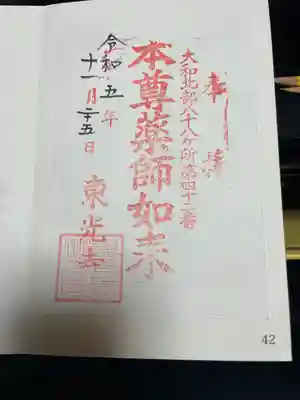 奉
大和北部八十八ヶ所第四十二番
本尊薬師如来
令和五年
十一月二十五日
東光寺
42